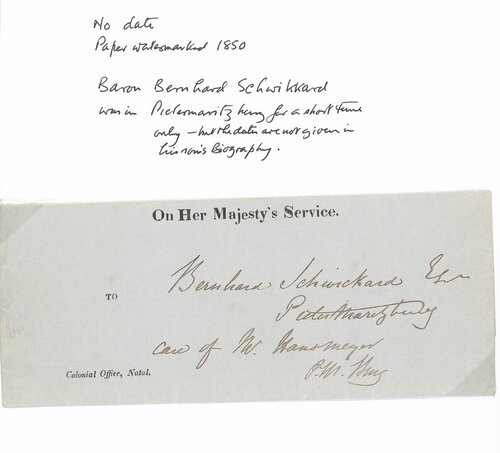 No date
Paper watermarked 1850
Baron Bernhard Schwikkard
was in Pietermaritzburg for a short time
only – but the dates are not given in
his son's Biography.
On Her Majesty's Service.
Bernhard Schwickard Esqr
TO
Pietermaritzburg
care of Mr. Hansmeyer
P. M. Burg
Colonial Office, Natal.